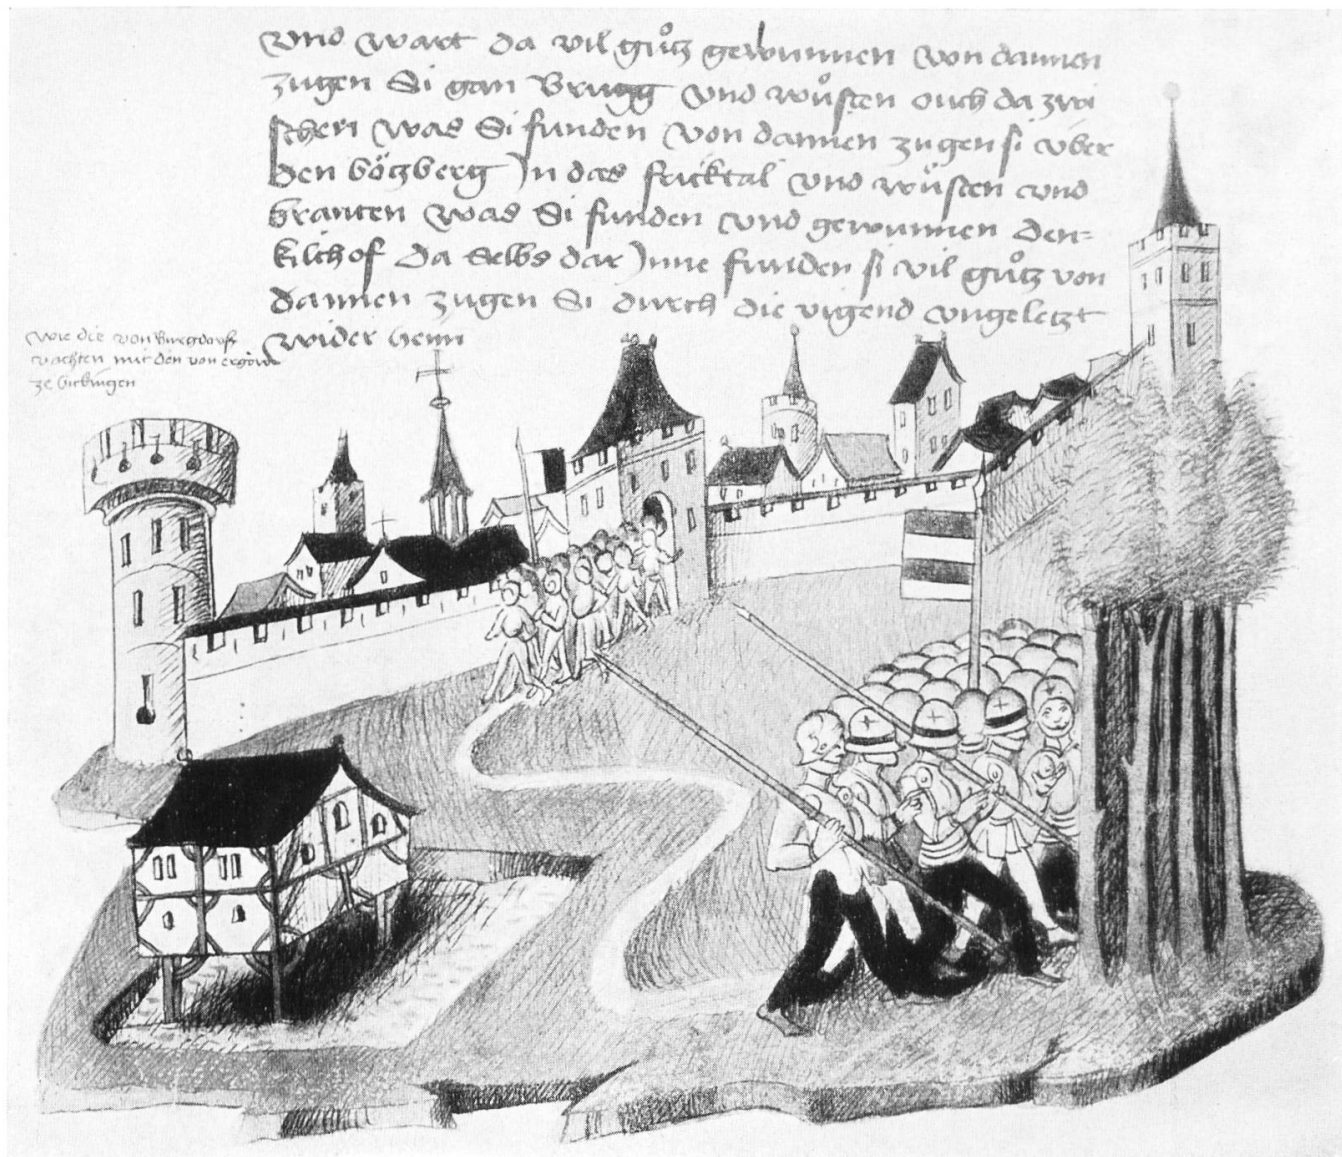 vnd wart da vil gůtz gewunnen von dannen
zugen Si gan Brugg vnd wůsten ouch da zwi
schen was Si funden von dannen zugen si vber
den bözberg Jn das fricktal vnd wůsten vnd
branten was Si funden vnd gewunnen den
kilchof da selbs dar Jnne funden si vil gůtz von
dannen zugen Si durch die vigend vngeletzt
wider heim
wie die von Burgdorff
vachten mit den von ergöw
ze